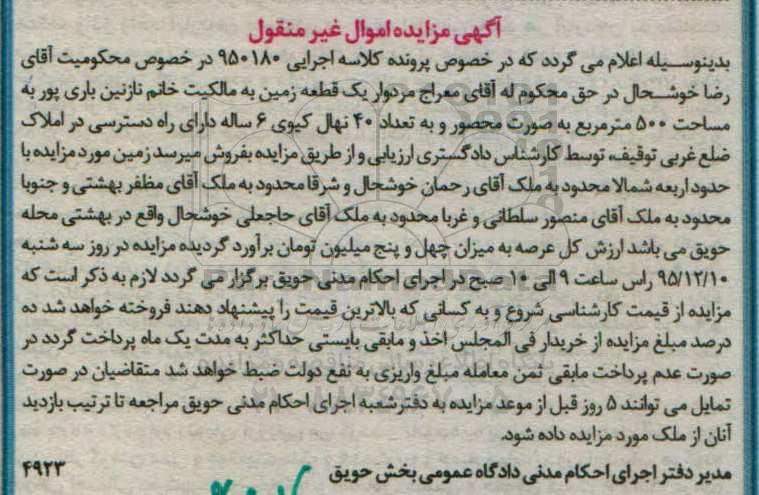 آگهی مزایده اموال غیر منقول
بدینوسیله اعلام می گردد که در خصوص پرونده کلاسه اجرایی ۹۵۰۱۸۰ در خصوص محکومیت آقای
رضا خوشحال در حق محکوم له آقای معراج مردوار یک قطعه زمین به مالکیت خانم نازنین یاری پور به
مساحت ۵۰۰ مترمربع به صورت محصور و به تعداد ۴۰ نهال کیوی ۶ ساله دارای راه دسترسی در املاک
ضلع غربی توقیف، توسط کارشناس دادگستری ارزیابی و از طریق مزایده بفروش میرسد زمین مورد مزایده با
حدود اربعه شمالا محدود به ملک آقای رحمان خوشحال و شرقا محدود به ملک آقای مظفر بهشتی و جنوبا
محدود به ملک آقای منصور سلطانی و غربا محدود به ملک آقای حاجعلی خوشحال واقع در بهشتی محله
حویق می باشد ارزش کل عرصه به میزان چهل و پنج میلیون تومان برآورد گردیده مزایده در روز سه شنبه
۹۵/۱۲/۱۰ راس ساعت ۹ الی ۱۰ صبح در اجرای احکام مدنی حویق برگزار می گردد لازم به ذکر است که
مزایده از قیمت کارشناسی شروع و به کسانی که بالاترین قیمت را پیشنهاد دهند فروخته خواهد شد ده
درصد مبلغ مزایده از خریدار فی المجلس اخذ و مابقی بایستی حداکثر به مدت یک ماه پرداخت گردد در
صورت عدم پرداخت مابقی ثمن معامله مبلغ واریزی به نفع دولت ضبط خواهد شد متقاضیان در صورت
تمایل می توانند ۵ روز قبل از موعد مزایده به دفترشعبه اجرای احکام مدنی حویق مراجعه تا ترتیب بازدید
آنان از ملک مورد مزایده داده شود.
مدیر دفتر اجرای احکام مدنی دادگاه عمومی بخش حویق ۴۹۲۳